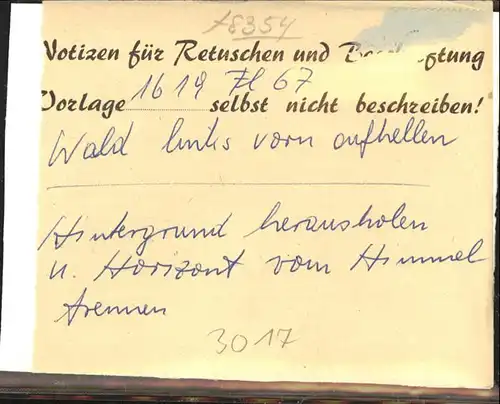 18354
Notizen für Retuschen und
1619 Zl 67
Vorlage selbst nicht beschreiben!
Wald links vorn aufhellen
Hintergrund herausholen
u. Horizont vom Himmel
trennen
3017